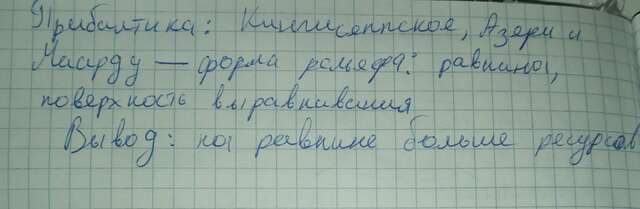 Прибалтика: Кингисеппское, Азери и
Маарду — форма рельефа: равнины,
поверхность выравнивания
Вывод: на равнине больше ресурсов